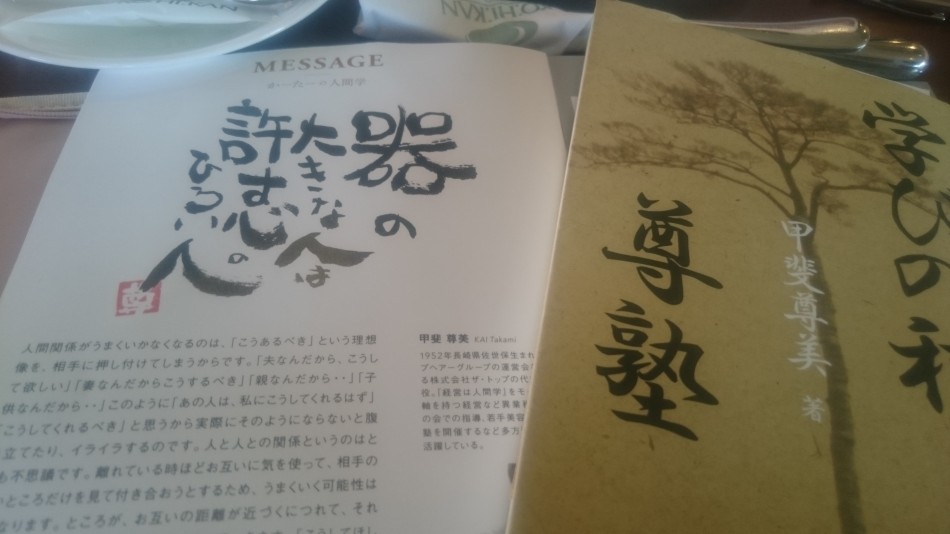 MESSAGE
の人間学
器の
大きな人は
許す心の
ひろい人
尊
人間関係がうまくいかなくなるのは、「こうあるべき」という理想
像を、相手に押し付けてしまうからです。「夫なんだから、こうし
て欲しい」「妻なんだからこうするべき」「親なんだから・・」「子
供なんだから・・」このように「あの人は、私にこうしてくれるはず」
「こうしてくれるべき」と思うから実際にそのようにならないと腹
立てたり、イライラするのです。人と人との関係というのはと
も不思議です。離れている時ほどお互いに気を使って、相手の
いところだけを見て付き合おうとするため、うまくいく可能性は
なります。ところが、お互いの距離が近づくにつれて、それ
甲斐 尊美 KAI Takami
1952年長崎県佐世保生まれ
プヘアーグループの運営会
る株式会社ザ・トップの代
役。「経営は人間学」をモ
軸を持つ経営など異業
の会での指導、若手美容
塾を開催するなど多方
活躍している。
学びの
尊塾
甲斐尊美 著